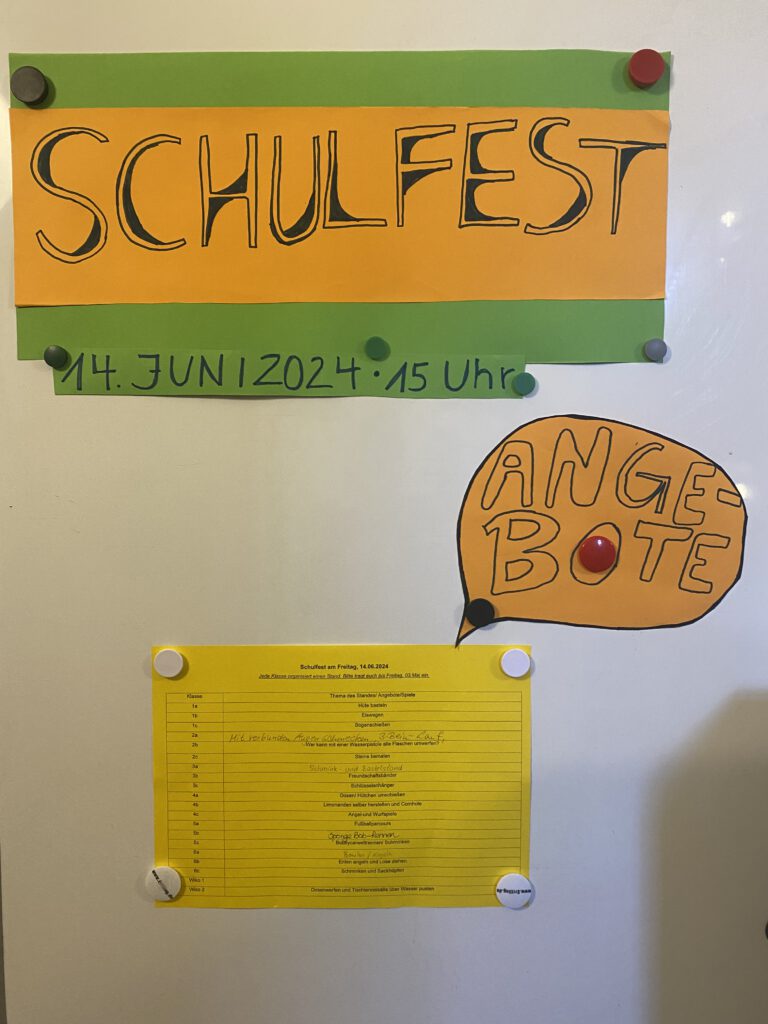 SCHULFEST
14. JUNI 2024 · 15 Uhr
ANGE-
BOTE
Schulfest am Freitag, 14.06.2024
Jede Klasse organisiert einen Stand. Bitte tragt euch bis Freitag, 03.Mai ein.
Klasse Thema des Standes/ Angebote/Spiele
1a Hüte basteln
1b Eiswagen
1c Bogenschießen
2a Mit verbundenen Augen schmecken, 3-Bein-Lauf,
2b Wer kann mit einer Wasserpistole alle Flaschen umwerfen?
2c Steine bemalen
3a Schmink- und Bastelstand
3b Freundschaftsbänder
3c Schlüsselanhänger
4a Dosen/ Hütchen umschießen
4b Limonanden selber herstellen und Cornhole
4c Angel-und Wurfspiele
5a Fußballparcours
5b Sponge Bob-Rennen
5c
6a
6b Enten angeln und Lose ziehen
6c Schminken und Sackhüpfen
Wiko 1
Wiko 2 Dosenwerfen und Tischtennisbälle über Wasser pusten